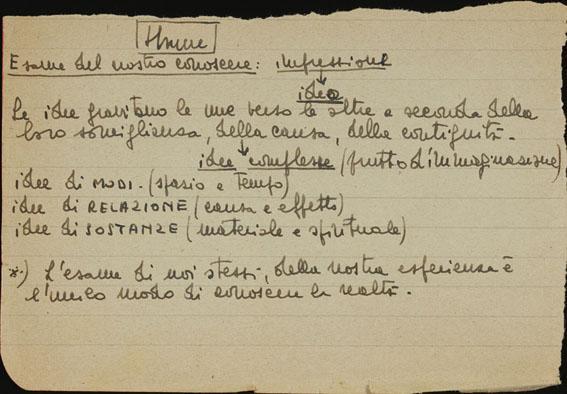 Hume
Esame del nostro conoscere: impressione
idea
Le idee gravitano le une verso le altre a seconda della
loro somiglianza, della causa, della contiguità.
idee complesse (frutto d'immaginazione)
idee di MODI. (spazio e tempo)
idee di RELAZIONE (causa e effetto)
idee di SOSTANZE (materiale e spirituale)
*) L'esame di noi stessi, della nostra esperienza è
l'unico modo di conoscere la realtà.